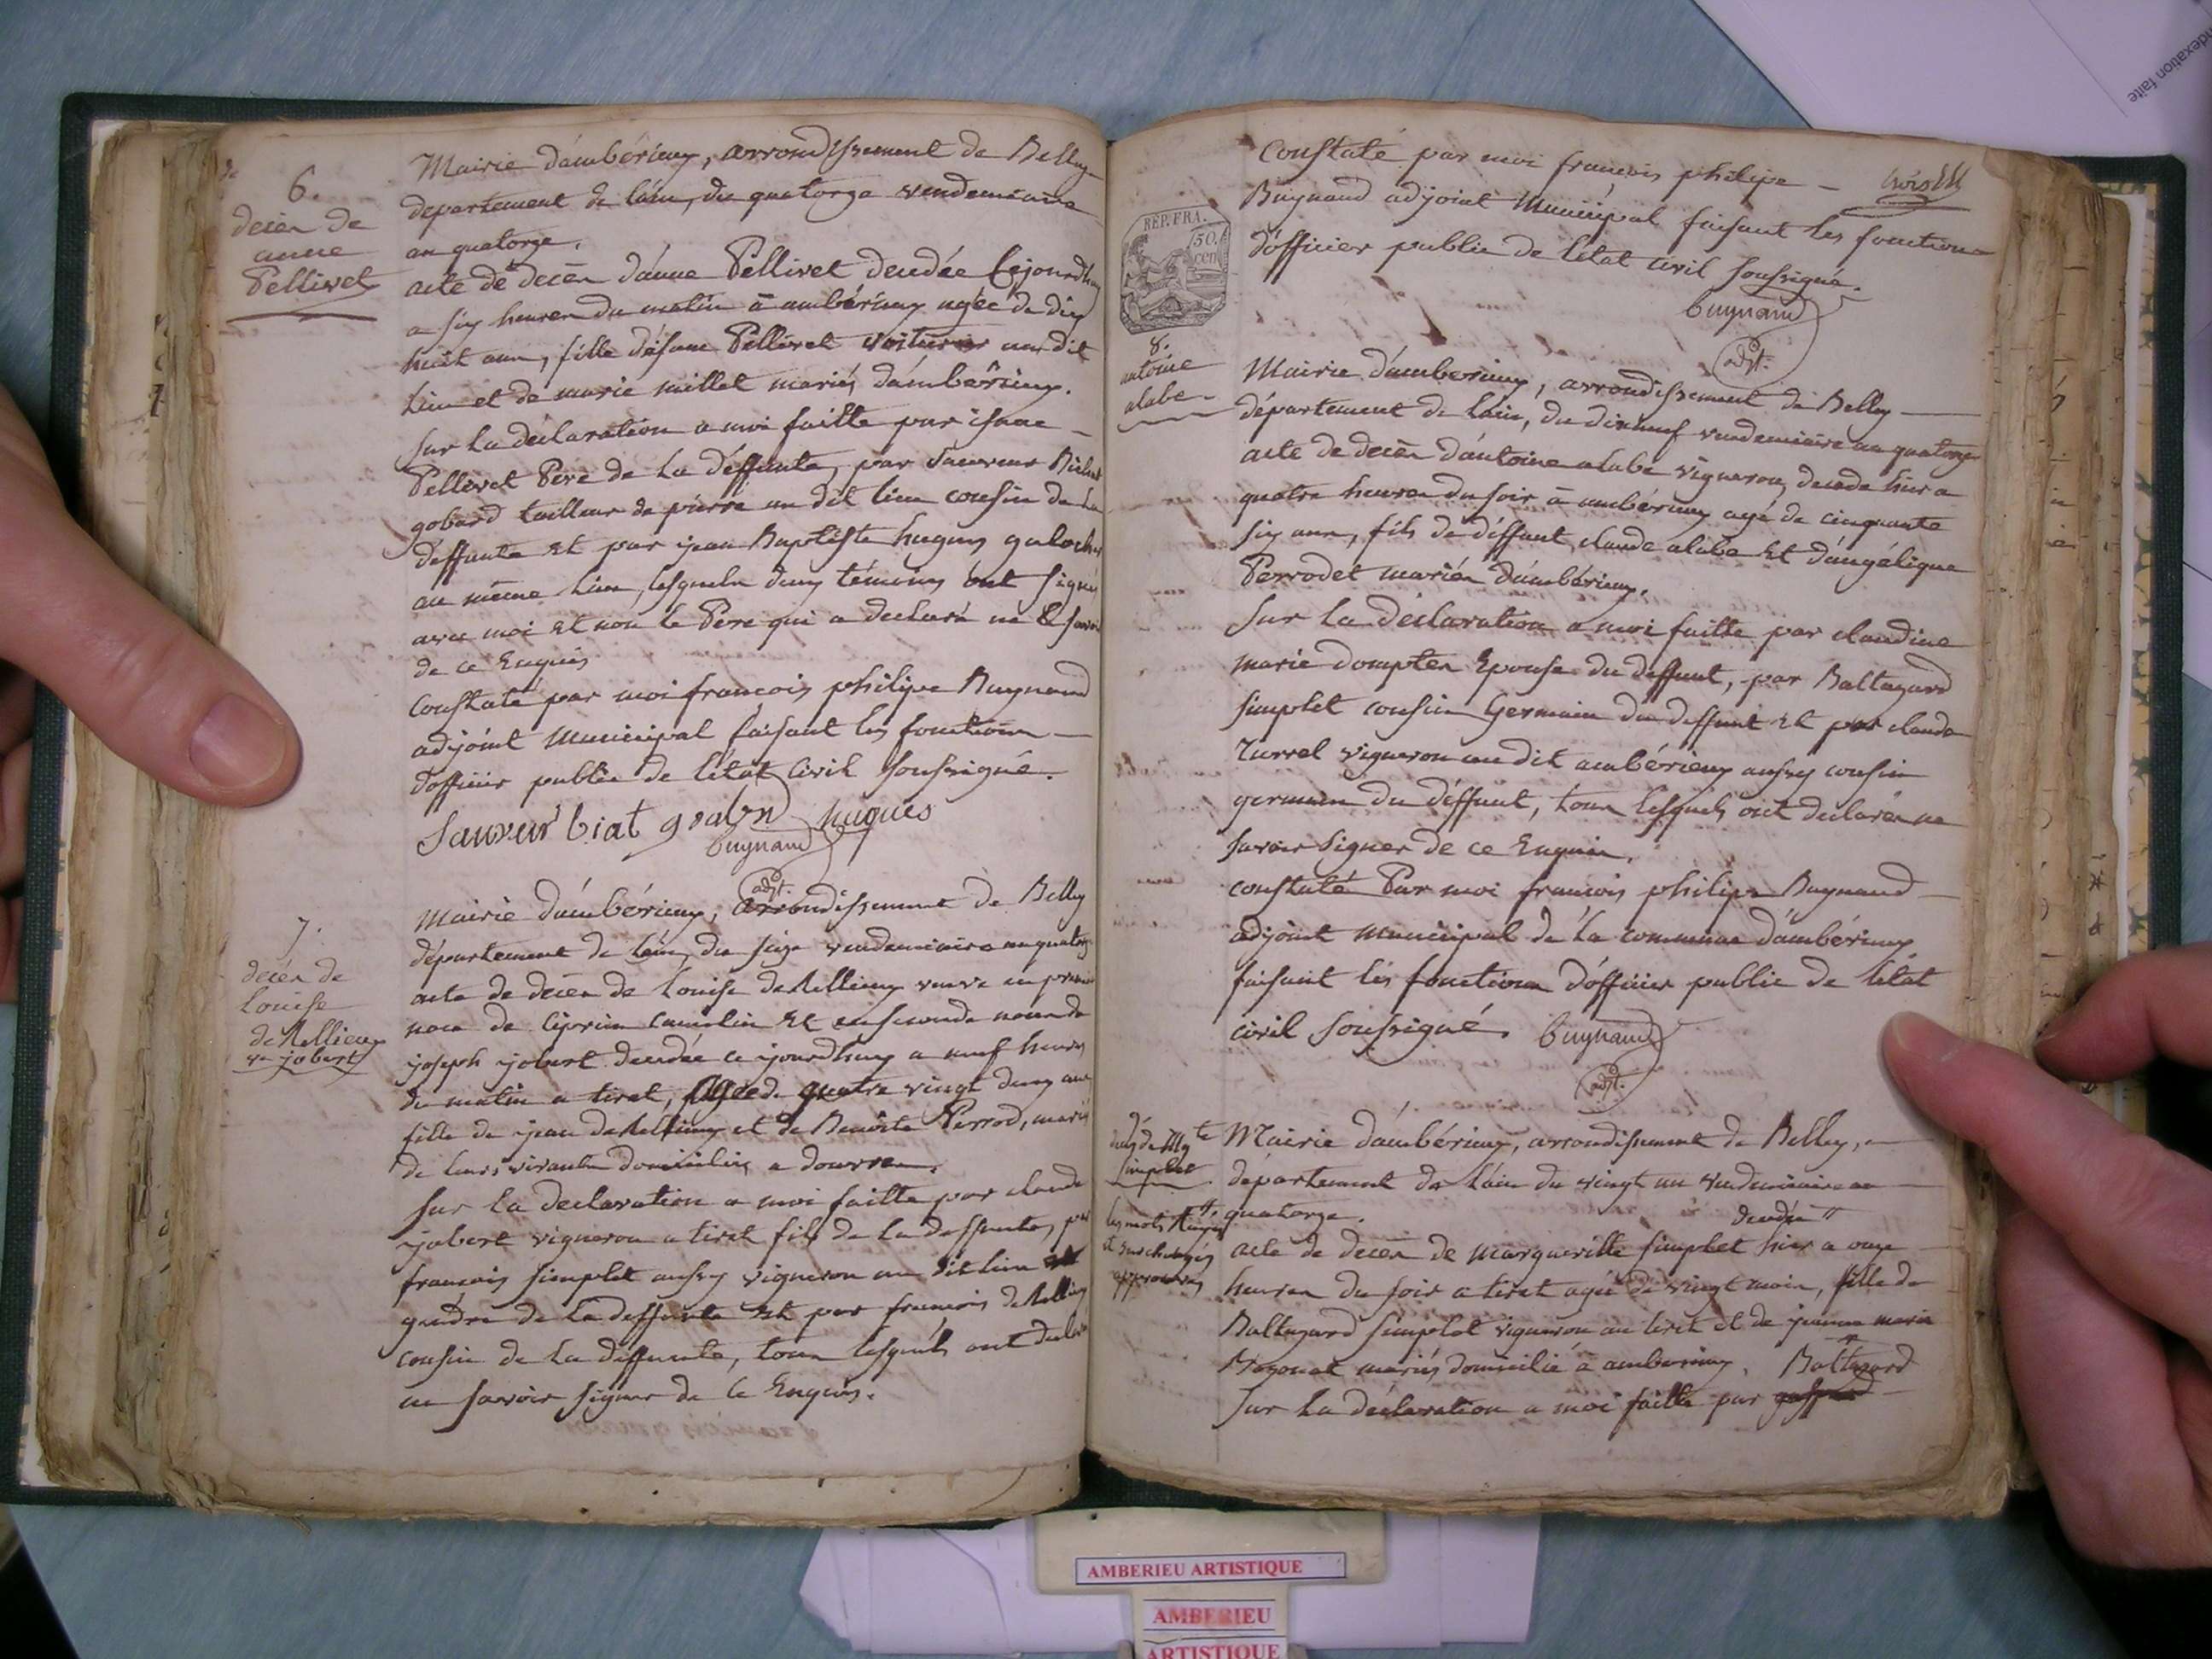 6.
decès de
anne
Pellivet
Mairie d'ambérieux, arrondissement de Belley
departement de l'ain, du quatorze vendemiaire
an quatorze.
acte de decès d'anne Pellivet decedée cejourdhuy
a six heures du matin à ambérieux agée de dix
huit ans, fille d'isaac Pellivet voiturier au dit
Lieu et de marie millet mariés d'ambérieux.
sur la declaration a moi faitte par isaac
Pellivet Pere de la déffunte, par sauveur
gobard tailleur de pierre au dit lieu cousin de la
deffunte et par jean Baptiste hugues
au même lieu, lesquels deux témoins ont signé
avec moi et non le Pere qui a declaré ne le savoir
de ce Enquis
Constaté par moi francois philipe Buynand
adjoint municipal faisant les fonctions
d'officier public de l'état civil soussigné.
Sauveur biat hugues
buynand
adjt.
7.
decès de
Louise
deRellieux
ve jobert
Mairie d'ambérieux, arrondissement de Belley
département de l'ain, du seize vendemiaire an quatorze
acte de decès de Louise deRellieux veuve en premiere
noce de ciprien camelin et en seconde noces de
joseph jobert decedée ce jourdhuy a neuf heures
du matin a tiret, agée de quatre vingt deux ans
fille de jean deRellieux et de Benoite Perrod, mariés
de leurs vivants domiciliés a douvres.
sur la declaration a moi faitte par claude
jobert vigneron a tiret fils de la deffunte, par
francois simplet aussy vigneron au dit lieu
gendre de la deffunte et par francois deRellieux
cousin de la deffunte, tous lesquels ont declaré
ne savoir signer de ce Enquis.
Constaté par moi francois philipe
Buynand adjoint municipal faisant les fonctions
d'officier public de l'état civil soussigné.
buynand
adjt.
REP. FRA.
50.
cen
8.
antoine
alabe
Mairie d'amberieux, arrondissement de Belley
département de l'ain, du dixneuf vendemiaire an quatorze
acte de decès d'antoine alabe vigneron, decedé hier a
quatre heures du soir à ambérieux agé de cinquante
six ans, fils de déffunt claude alabe et d'angélique
Perrodet mariés d'ambérieux.
sur la déclaration a moi faitte par claudine
marie dompter Epouse du deffunt, par Baltazard
simplet cousin Germain du deffunt et par claude
Turrel vigneron au dit ambérieux aussy cousin
germain du déffunt, tous lesquels ont declarés ne
savoir signer de ce Enquis.
constaté Par moi francois philipe Buynand
adjoint municipal de la commune d'ambérieux
faisant les fonctions d'officier public de l'état
civil soussigné. buynand
adjt.
simplet
les mots
et surchargés
approuvés
Mairie d'ambérieux, arrondissement de Belley,
departement de l'ain du vingt un vendemiaire an
quatorze.
decedée
acte de decès de margueritte simplet hier a onze
heures du soir a tiret agée de vingt mois, fille de
Baltazard simplet vigneron au tiret et de jeanne marie
mariés domicilié à amberieux. Baltazard
sur la déclaration a moi faitte par
AMBERIEU ARTISTIQUE
AMBERIEU
ARTISTIQUE
indexation faite